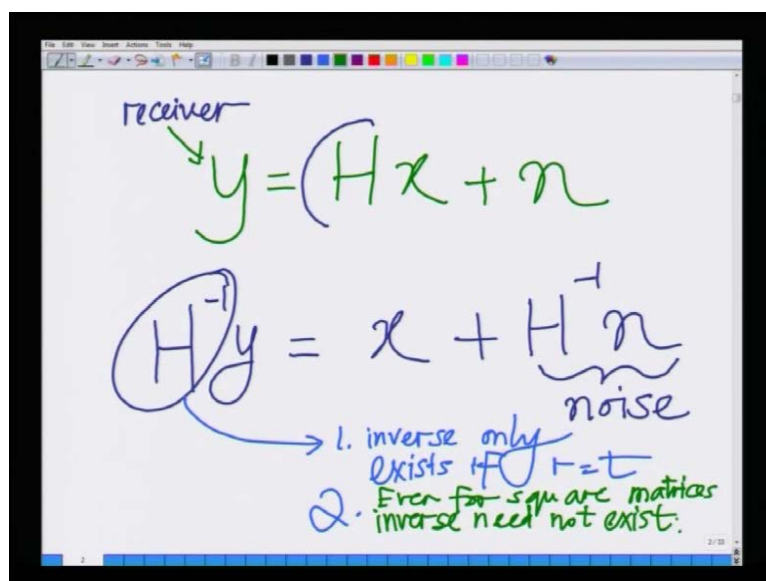 File Edit View Insert Actions Tools Help
receiver
y = (Hx + n
H⁻¹y = x + H⁻¹n
noise
1. inverse only
exists if r = t
2. Even for square matrices
inverse need not exist.
2
2/33